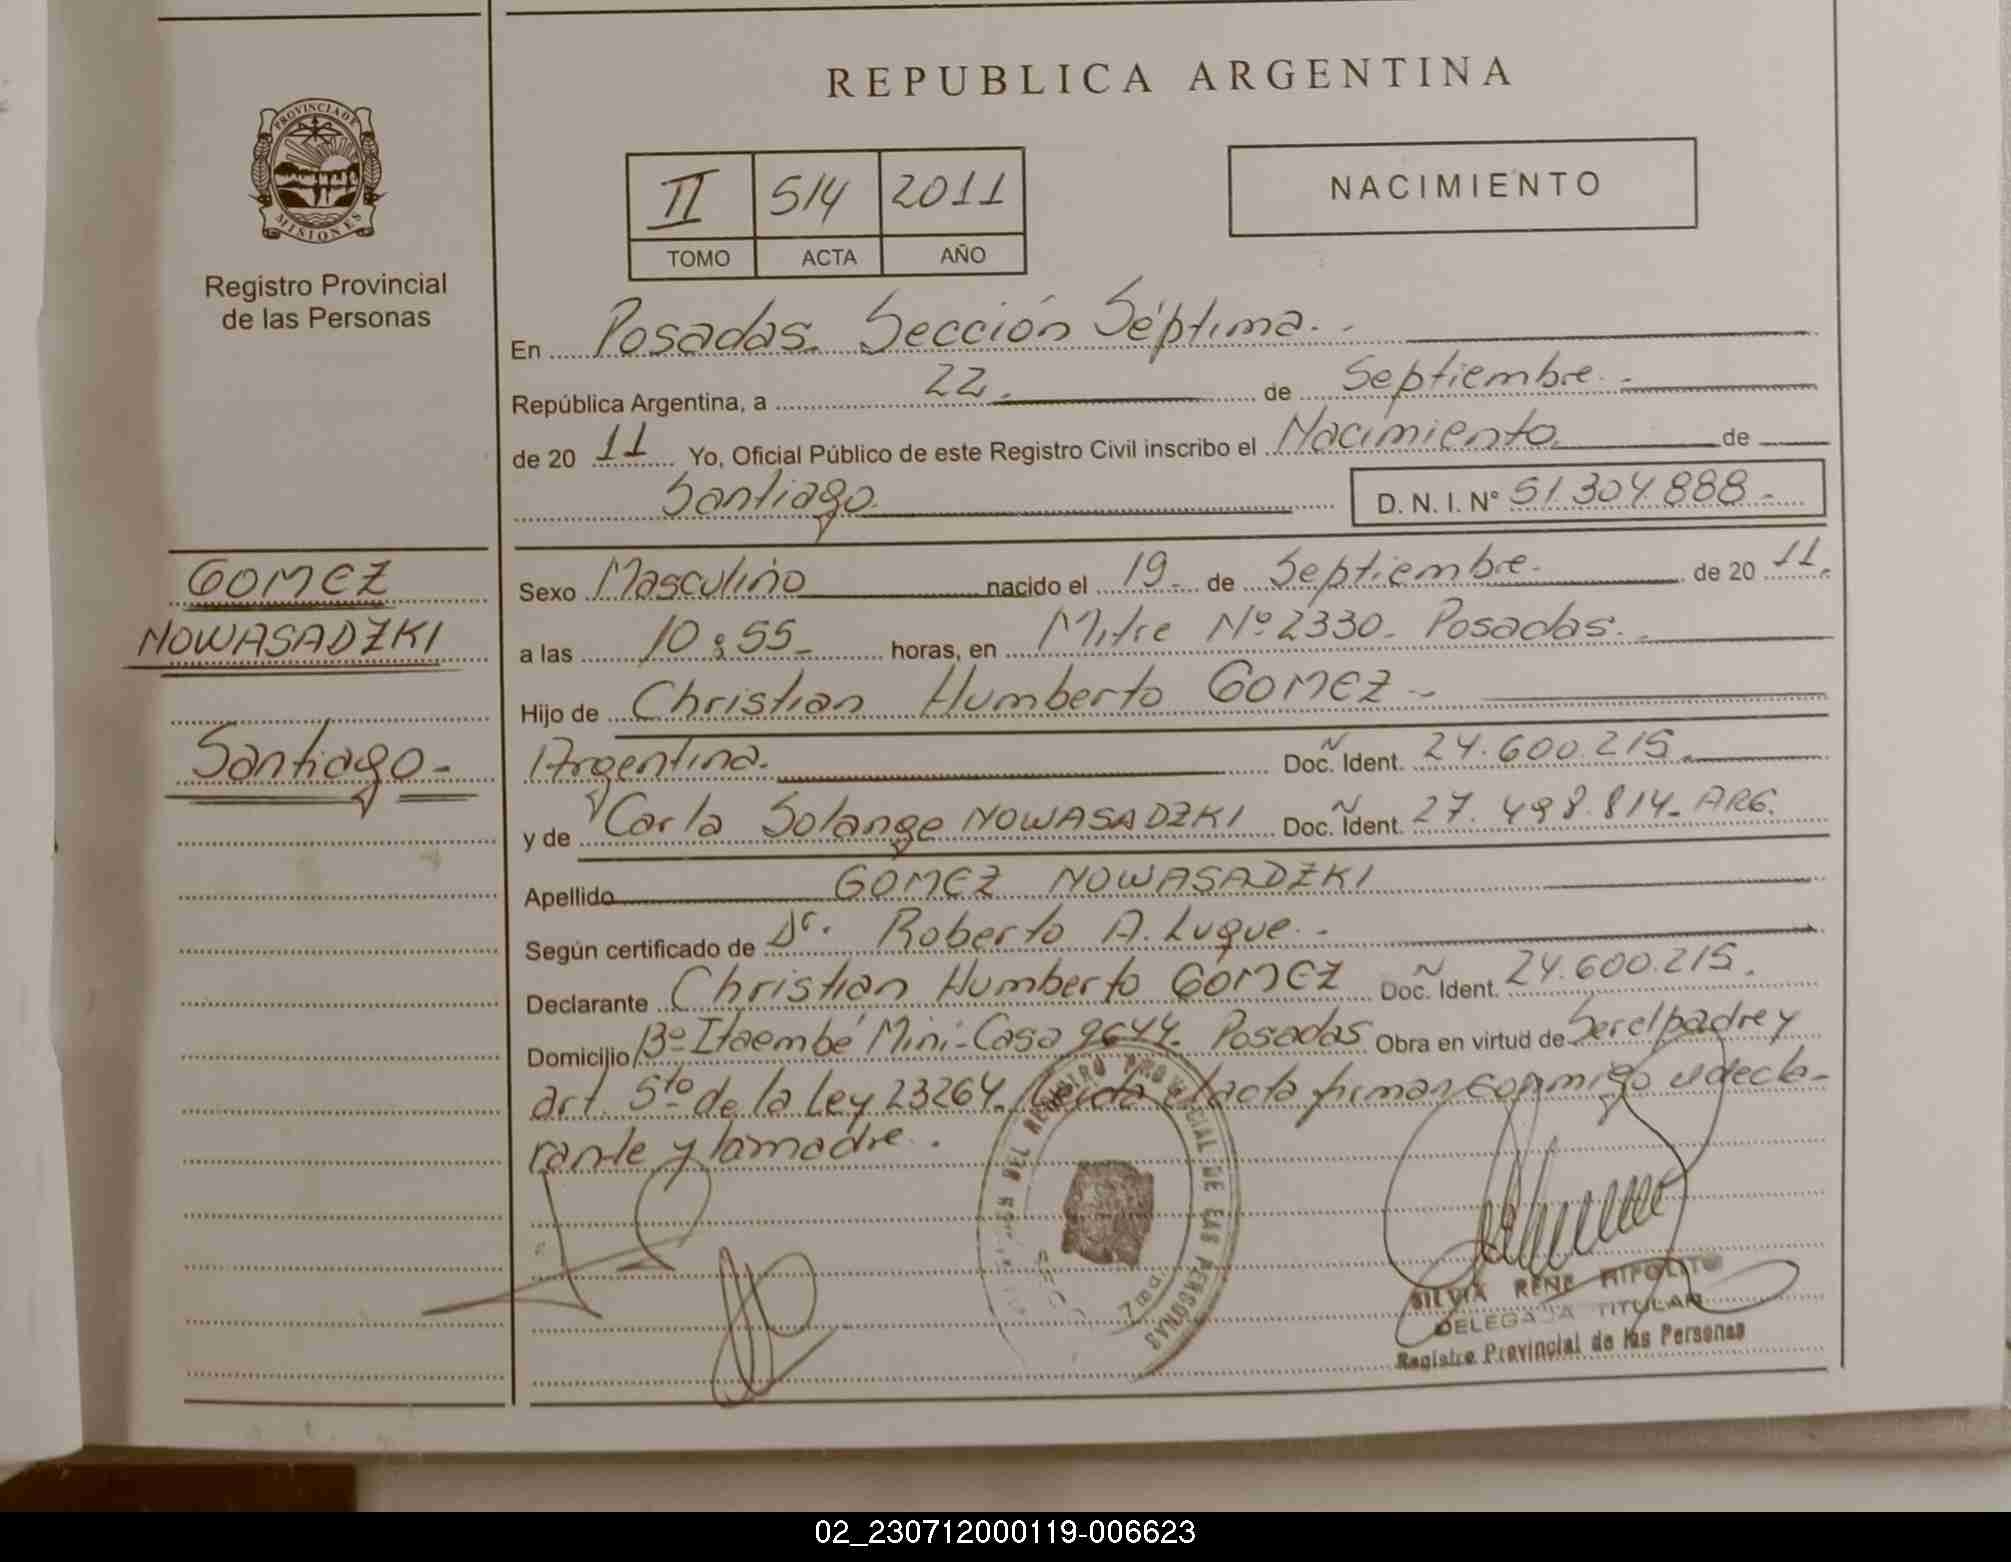 REPUBLICA ARGENTINA
PROVINCIA DE
MISIONES
Registro Provincial
de las Personas
II 514 2011
TOMO ACTA AÑO
NACIMIENTO
En Posadas. Sección Séptima.
República Argentina, a 22 de Septiembre
de 20 11 Yo, Oficial Público de este Registro Civil inscribo el Nacimiento de
Santiago D. N. I. N° 51.304.888
GOMEZ
NOWASADZKI
Santiago
Sexo Masculino nacido el 19 de Septiembre de 20 11
a las 10:55 horas, en Mitre Nº 2330. Posadas.
Hijo de Christian Humberto GOMEZ
Argentina. Doc. Ident. 24.600.215
y de Carla Solange NOWASADZKI Doc. Ident. 27.498.814 ARG.
Apellido GOMEZ NOWASADZKI
Según certificado de Dr. Roberto A. Luque
Declarante Christian Humberto GOMEZ Doc. Ident. 24.600.215.
Domicilio Bº Itaembé Mini-Casa 9644. Posadas Obra en virtud de Ser el padre y
art. 5to de la Ley 23264. Leida el acta firman conmigo el decla-
rante y la madre.
DEL REGISTRO PROVINCIAL DE LAS PERSONAS
SILVIA RENE HIPOLITO
DELEGADA TITULAR
Registro Provincial de las Personas
02_230712000119-006623